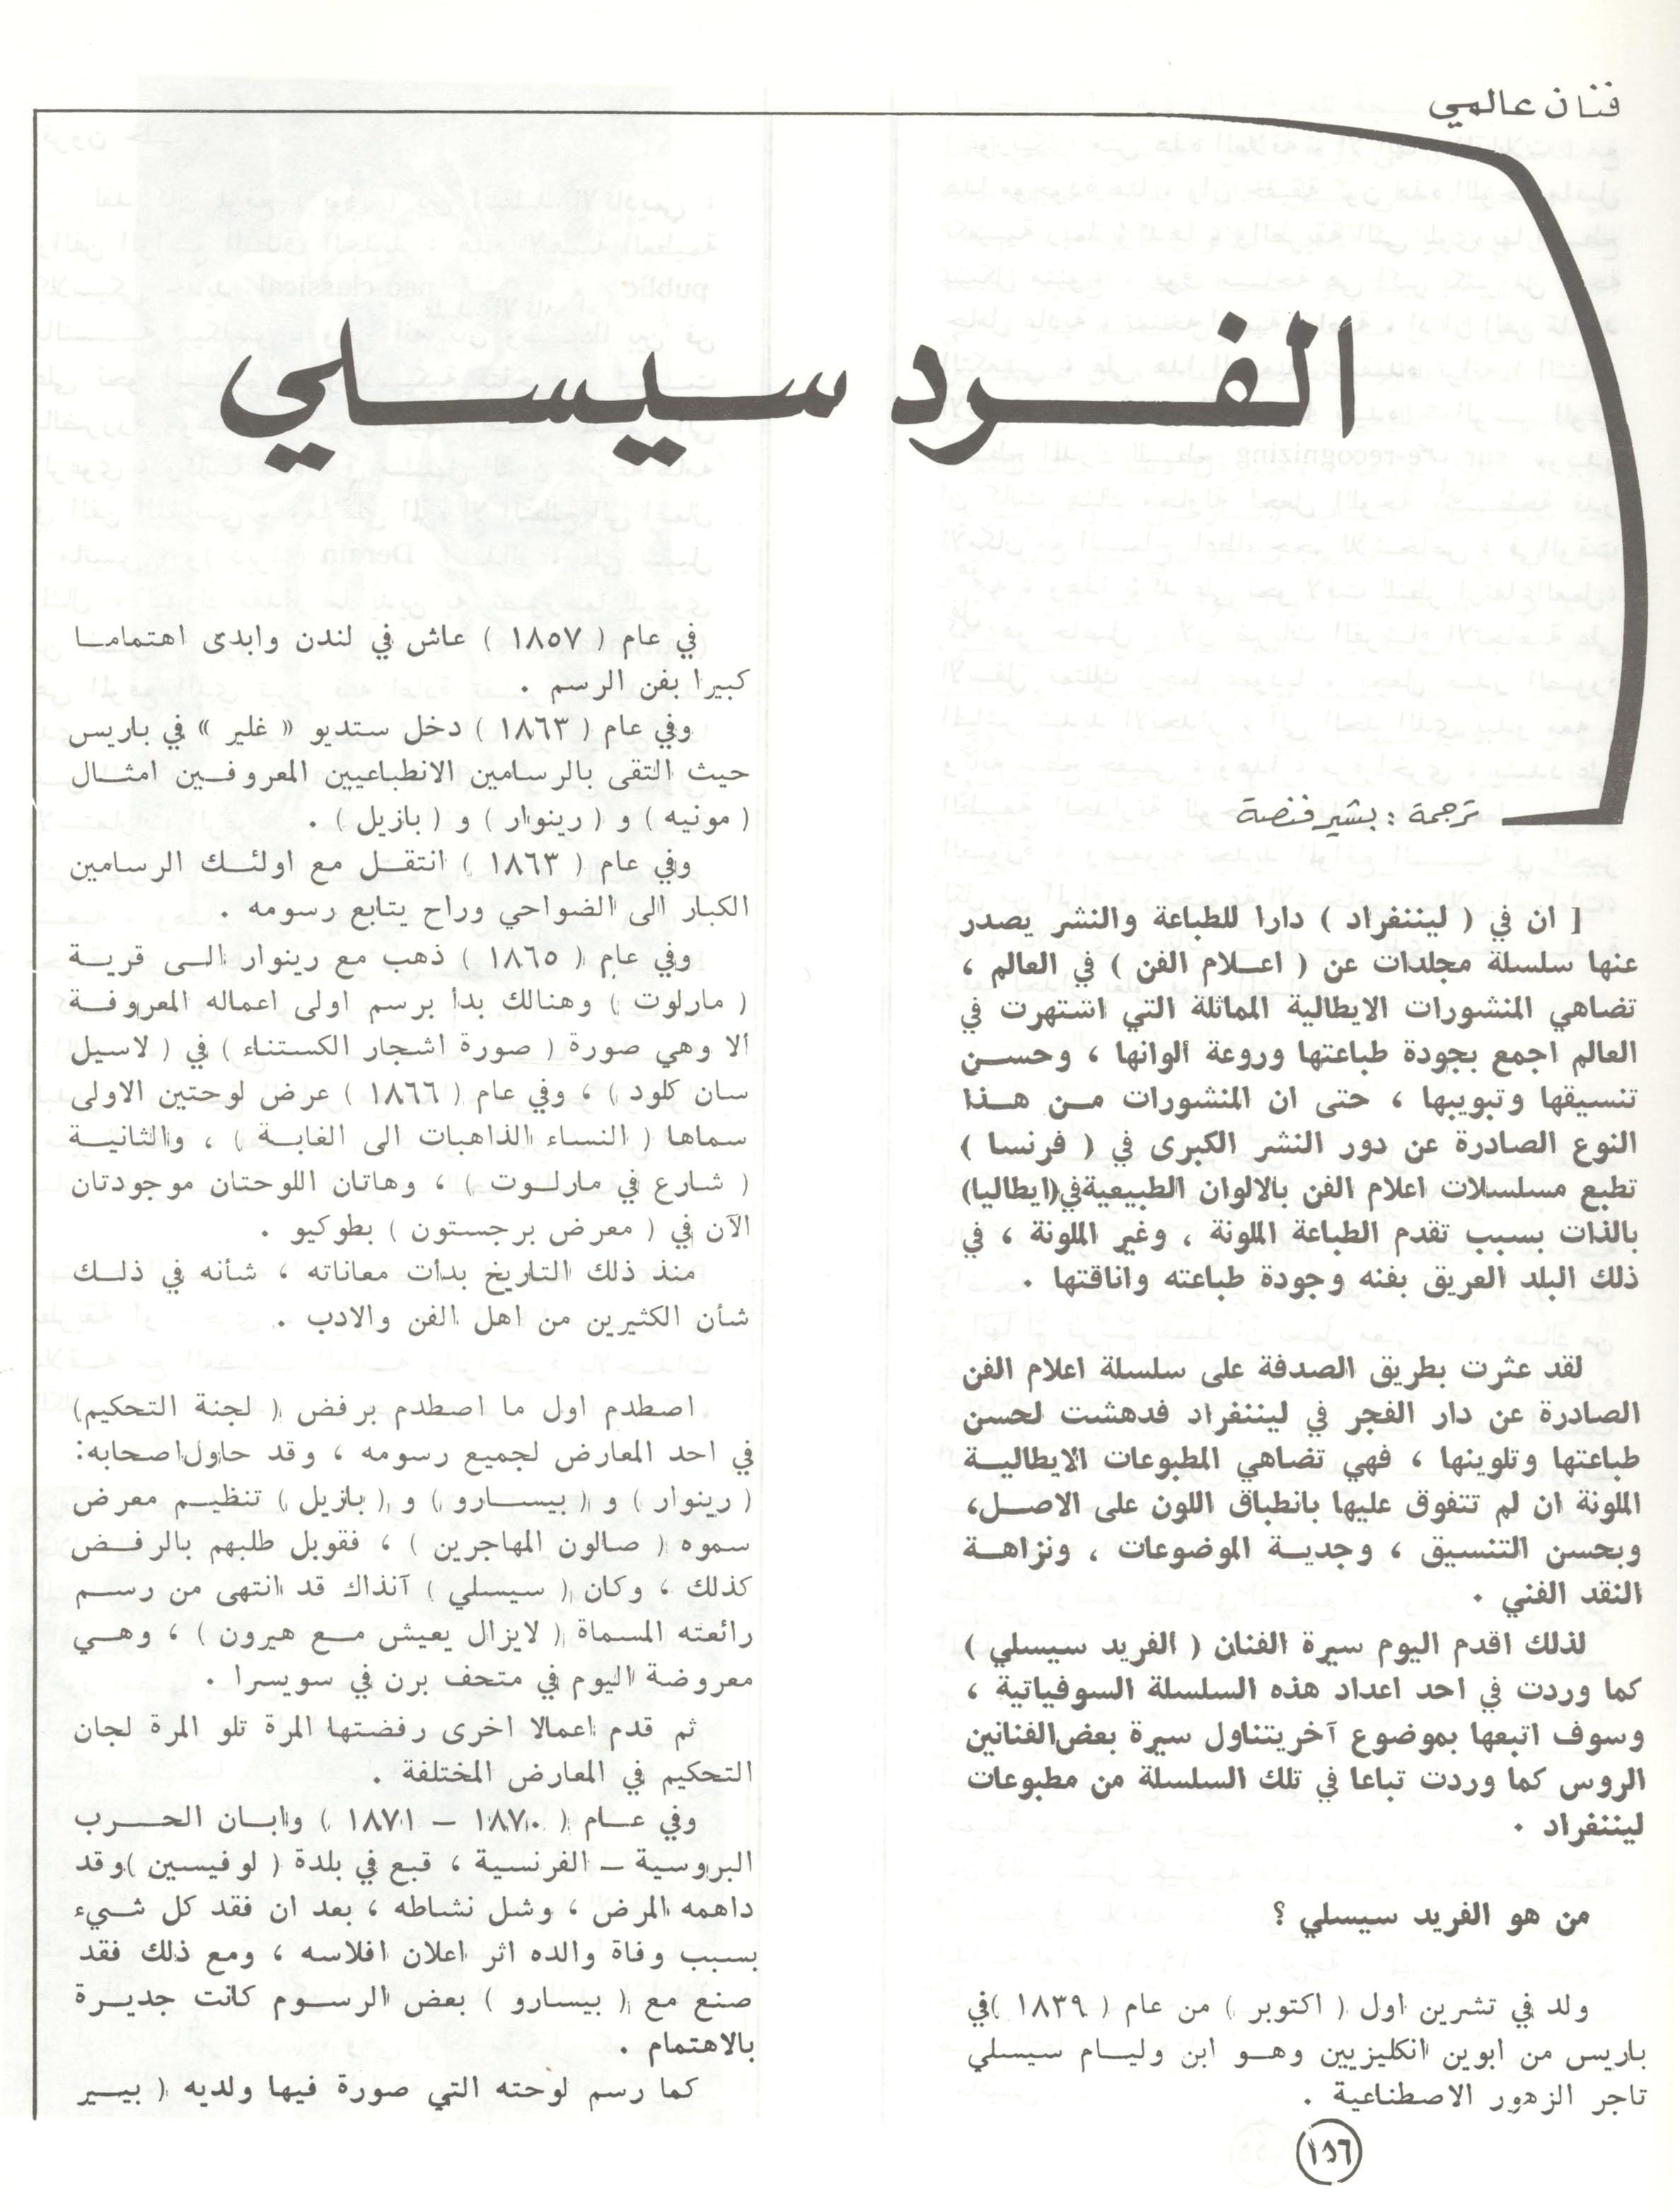 فنان عالمي
الفرد سيسلي
ترجمة : بشير فنصة
[ ان في ( ليننغراد ) دارا للطباعة والنشر يصدر
عنها سلسلة مجلدات عن ( اعلام الفن ) في العالم ،
تضاهي المنشورات الايطالية المماثلة التي اشتهرت في
العالم اجمع بجودة طباعتها وروعة ألوانها ، وحسن
تنسيقها وتبويبها ، حتى ان المنشورات من هذا
النوع الصادرة عن دور النشر الكبرى في ( فرنسا )
تطبع مسلسلات اعلام الفن بالالوان الطبيعية في (ايطاليا)
بالذات بسبب تقدم الطباعة الملونة ، وغير الملونة ، في
ذلك البلد العريق بفنه وجودة طباعته واناقتها .
لقد عثرت بطريق الصدفة على سلسلة اعلام الفن
الصادرة عن دار الفجر في ليننغراد فدهشت لحسن
طباعتها وتلوينها ، فهي تضاهي المطبوعات الايطالية
الملونة ان لم تتفوق عليها بانطباق اللون على الاصل،
وبحسن التنسيق ، وجدية الموضوعات ، ونزاهة
النقد الفني .
لذلك اقدم اليوم سيرة الفنان ( الفريد سيسلي )
كما وردت في احد اعداد هذه السلسلة السوفياتية ،
وسوف اتبعها بموضوع آخر يتناول سيرة بعض الفنانين
الروس كما وردت تباعا في تلك السلسلة من مطبوعات
ليننغراد .
من هو الفريد سيسلي ؟
ولد في تشرين اول ( اكتوبر ) من عام ( ١٨٣٩ ) في
باريس من ابوين انكليزيين وهو ابن وليام سيسلي
تاجر الزهور الاصطناعية .
في عام ( ١٨٥٧ ) عاش في لندن وابدى اهتماما
كبيرا بفن الرسم .
وفي عام ( ١٨٦٣ ) دخل ستديو « غلير » في باريس
حيث التقى بالرسامين الانطباعيين المعروفين امثال
( مونيه ) و ( رينوار ) و ( بازيل ) .
وفي عام ( ١٨٦٣ ) انتقل مع اولئك الرسامين
الكبار الى الضواحي وراح يتابع رسومه .
وفي عام ( ١٨٦٥ ) ذهب مع رينوار الى قرية
( مارلوت ) وهنالك بدأ برسم اولى اعماله المعروفة
ألا وهي صورة ( صورة اشجار الكستناء ) في ( لاسيل
سان كلود ) ، وفي عام ( ١٨٦٦ ) عرض لوحتين الاولى
سماها ( النساء الذاهبات الى الغابة ) ، والثانية
( شارع في مارلوت ) ، وهاتان اللوحتان موجودتان
الآن في ( معرض برجستون ) بطوكيو .
منذ ذلك التاريخ بدأت معاناته ، شأنه في ذلك
شأن الكثيرين من اهل الفن والادب .
اصطدم اول ما اصطدم برفض ( لجنة التحكيم)
في احد المعارض لجميع رسومه ، وقد حاول اصحابه:
( رينوار ) و ( بيسارو ) و ( بازيل ) تنظيم معرض
سموه ( صالون المهاجرين ) ، فقوبل طلبهم بالرفض
كذلك ، وكان ( سيسلي ) آنذاك قد انتهى من رسم
رائعته المسماة ( لايزال يعيش مع هيرون ) ، وهي
معروضة اليوم في متحف برن في سويسرا .
ثم قدم اعمالا اخرى رفضتها المرة تلو المرة لجان
التحكيم في المعارض المختلفة .
وفي عام ( ١٨٧٠ – ١٨٧١ ) وابان الحرب
البروسية – الفرنسية ، قبع في بلدة ( لوفيسين ) وقد
داهمه المرض ، وشل نشاطه ، بعد ان فقد كل شيء
بسبب وفاة والده اثر اعلان افلاسه ، ومع ذلك فقد
صنع مع ( بيسارو ) بعض الرسوم كانت جديرة
بالاهتمام .
كما رسم لوحته التي صورة فيها ولديه ( بيير
١٥٦